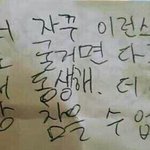 자꾸 이런스
굴거면 다
동생해. 더
참을 수 업